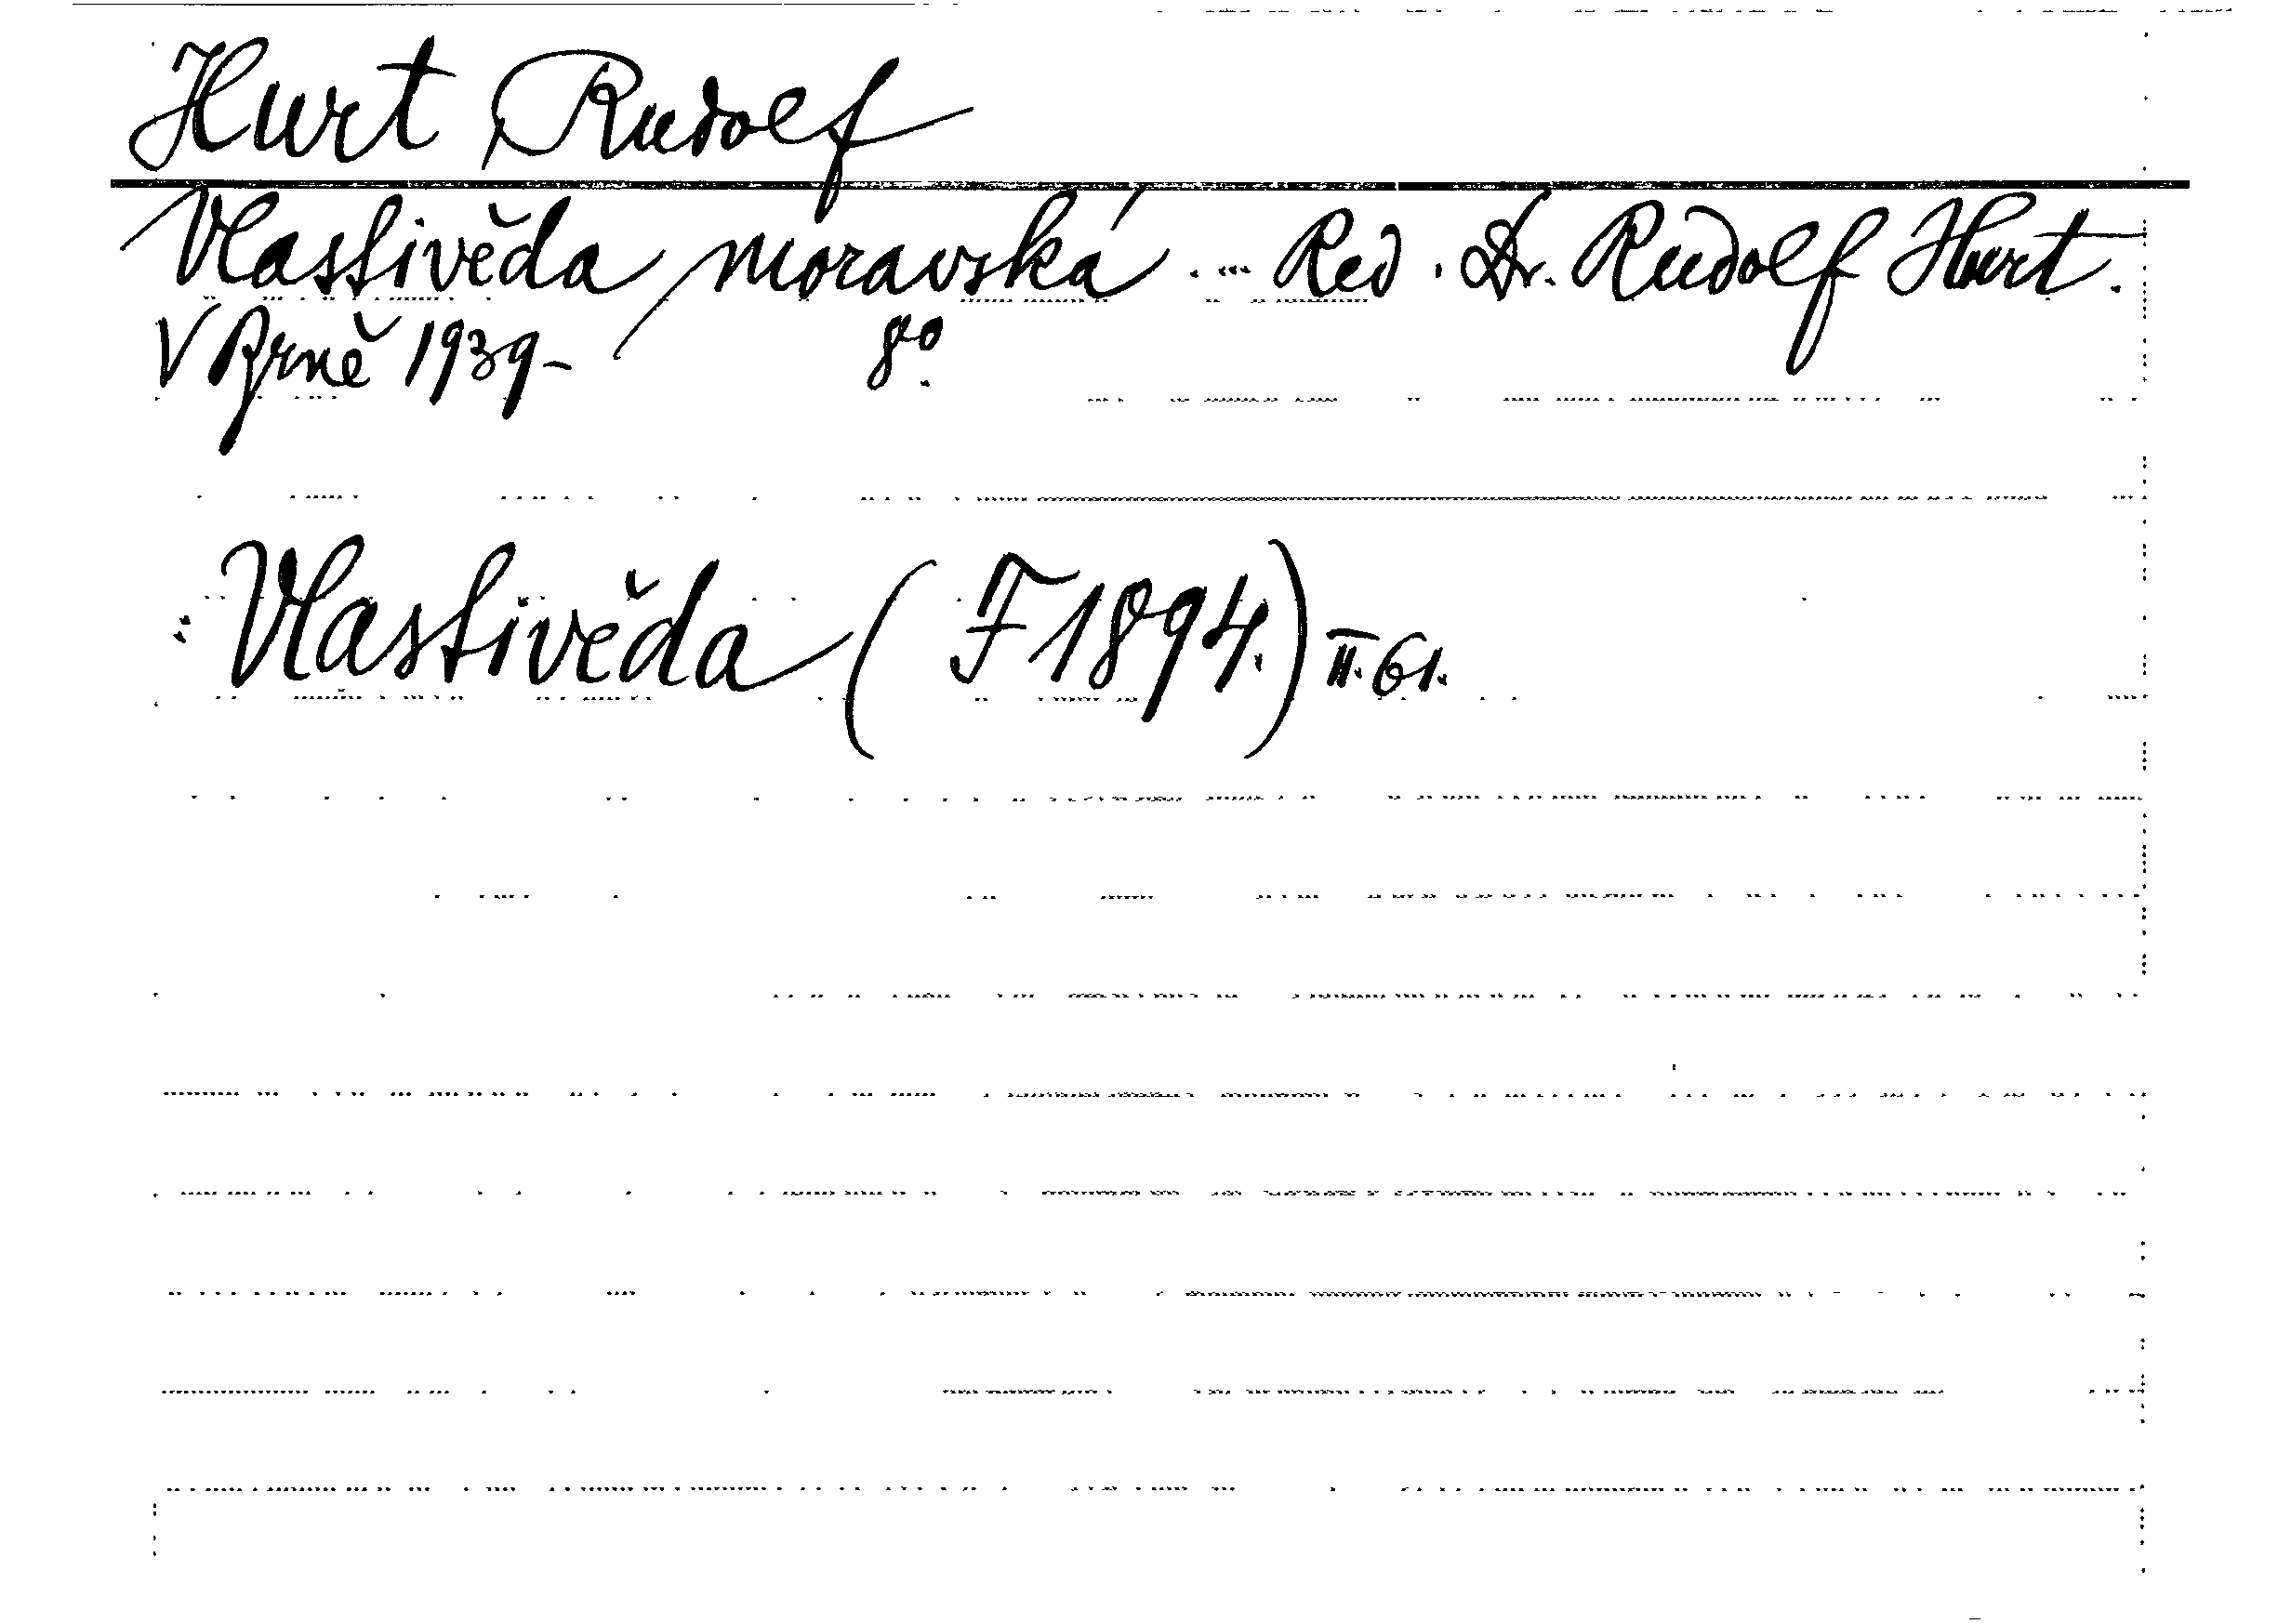 Hurt Rudolf
Vlastivěda moravská .... Red. Dr. Rudolf Hurt.
V Brně 1939- 8°.
: Vlastivěda (F 1894.) II. 61.